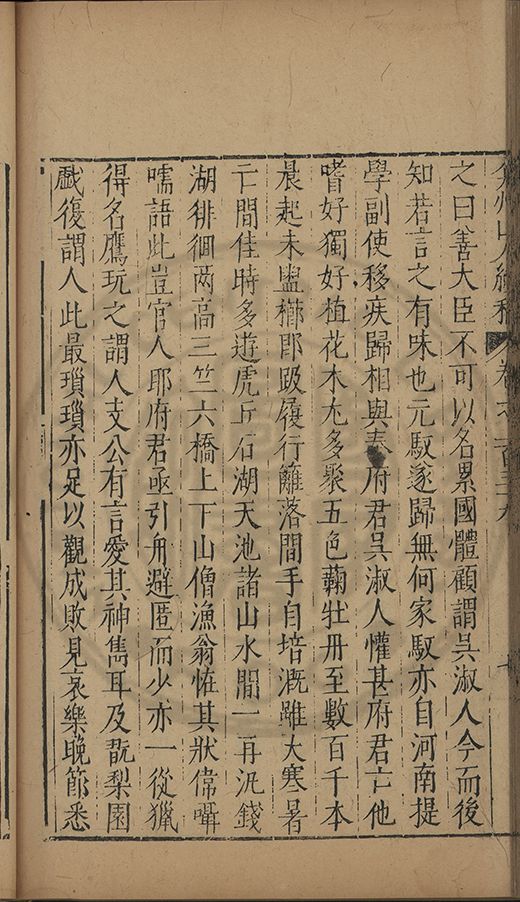 弇州山人續稿 卷之一百三十九
之曰善大臣不可以名累國體顧謂吳淑人今而後
知若言之有味也元馭遂歸無何家馭亦自河南提
學副使移疾歸相與奉府君吳淑人懽甚府君亡他
嗜好獨好植花木尤多聚五色蘜牡丹至數百千本
晨起未盥櫛即趿履行籬落間手自培溉雖大寒暑
亡間佳時多遊虎丘石湖天池諸山水間一再汎錢
湖徘徊两高三竺六橋上下山僧漁翁恠其狀偉囁
嚅語此豈官人耶府君亟引舟避匿而少亦一從獵
得名鷹玩之謂人支公有言愛其神雋耳及翫梨園
戲復謂人此最瑣瑣亦足以觀成敗見哀樂晚節悉